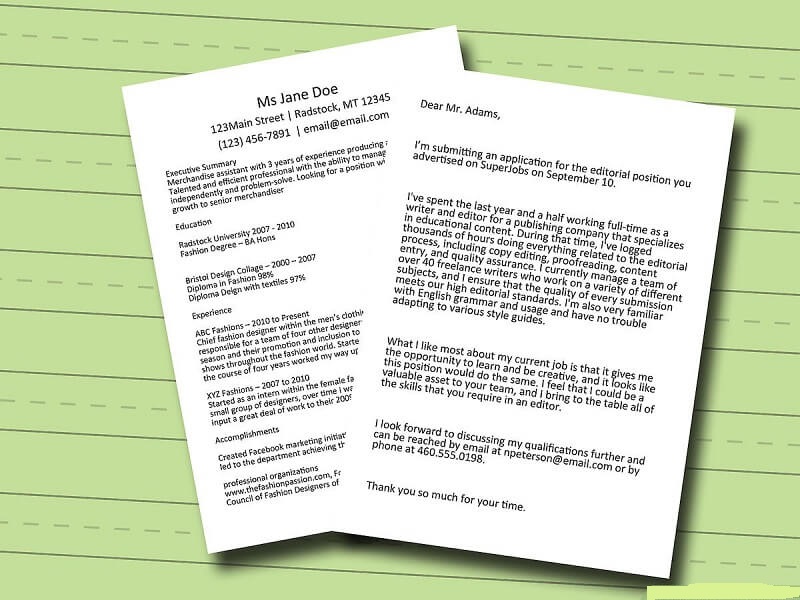 Ms Jane Doe
123Main Street | Radstock, MT 12345
(123) 456-7891 | email@email.com
Executive Summary
Merchandise assistant with 3 years of experience producing
Talented and efficient professional with the ability to manag
independently and problem-solve. Looking for a position wi
growth to senior merchandiser
Education
Radstock University 2007 - 2010
Fashion Degree – BA Hons
Bristol Design Collage – 2000 – 2007
Diploma in Fashion 98%
Diploma Deign with textiles 97%
Experience
ABC Fashions – 2010 to Present
Chief fashion designer within the men's clothin
responsible for a team of four other designer
season and their promotion and inclusion to
shows throughout the fashion world. Starte
the course of four years worked my way up
XYZ Fashions – 2007 to 2010
Started as an intern within the female fa
small group of designers, over time I w
input a great deal of work to their 2009
Accomplishments
Created Facebook marketing initiat
led to the department achieving th
professional organizations
www.thefashionpassion.com, Fr
Council of Fashion Designers of
Dear Mr. Adams,
I'm submitting an application for the editorial position you
advertised on SuperJobs on September 10.
I've spent the last year and a half working full-time as a
writer and editor for a publishing company that specializes
in educational content. During that time, I've logged
thousands of hours doing everything related to the editorial
process, including copy editing, proofreading, content
entry, and quality assurance. I currently manage a team of
over 40 freelance writers who work on a variety of different
subjects, and I ensure that the quality of every submission
meets our high editorial standards. I'm also very familiar
with English grammar and usage and have no trouble
adapting to various style guides.
What I like most about my current job is that it gives me
the opportunity to learn and be creative, and it looks like
this position would do the same. I feel that I could be a
valuable asset to your team, and I bring to the table all of
the skills that you require in an editor.
I look forward to discussing my qualifications further and
can be reached by email at npeterson@email.com or by
phone at 460.555.0198.
Thank you so much for your time.